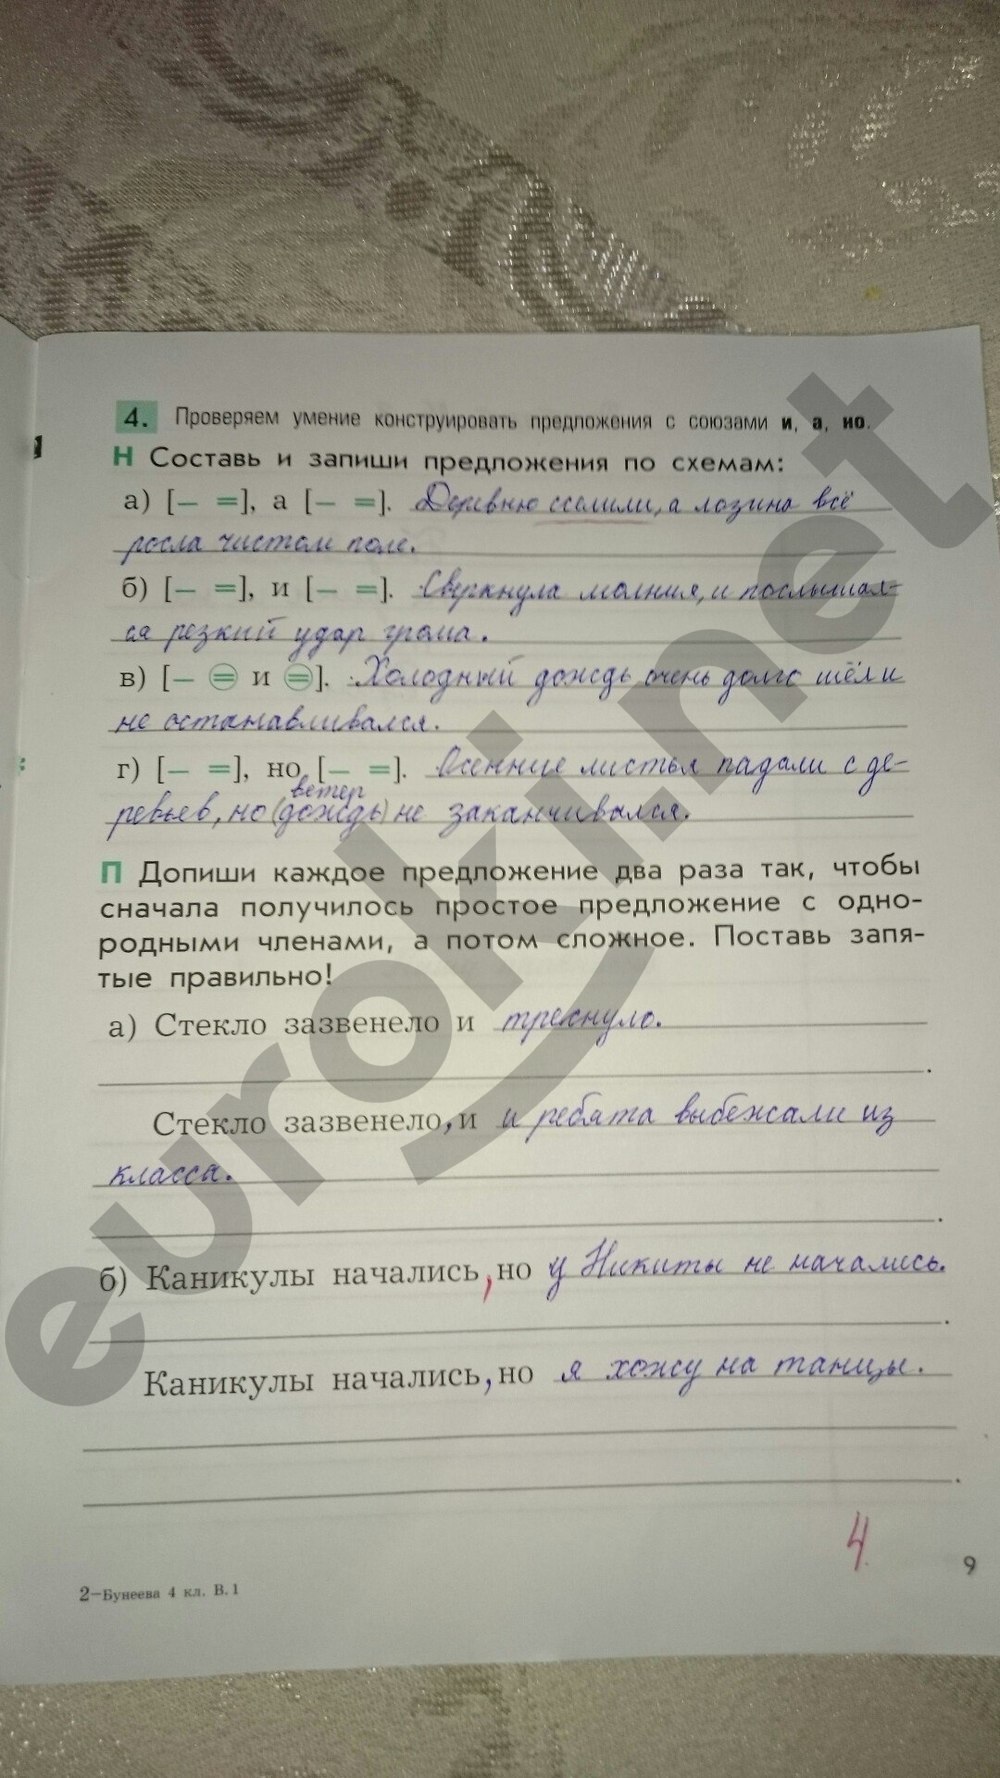 4. Проверяем умение конструировать предложения с союзами и, а, но.
Н Составь и запиши предложения по схемам:
а) [– =], а [– =]. Деревню сселили, а лозина всё
росла чистом поле.
б) [– =], и [– =]. Сверкнула молния, и послышал-
ся резкий удар грома.
в) [– = и =]. Холодный дождь очень долго шёл и
не останавливался.
г) [– =], но [– =]. Осенние листья падали с де-
ветер
ревьев, но (дождь) не заканчивался.
П Допиши каждое предложение два раза так, чтобы
сначала получилось простое предложение с одно-
родными членами, а потом сложное. Поставь запя-
тые правильно!
а) Стекло зазвенело и треснуло.
.
Стекло зазвенело, и и ребята выбежали из
класса.
.
б) Каникулы начались, но у Никиты не начались.
.
Каникулы начались, но я хожу на танцы.
.
4
9
2–Бунеева 4 кл. В.1
euroki.net